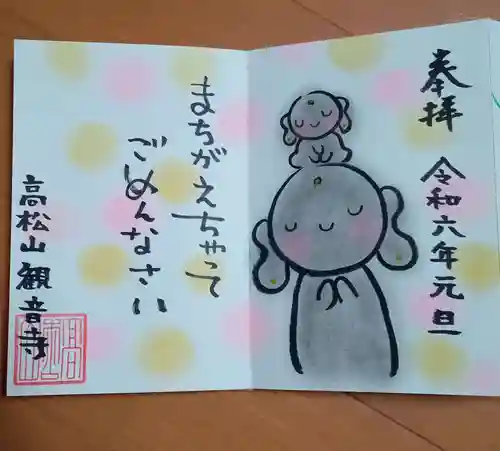 奉拝
令和六年元旦
まちがえちゃって
ごめんなさい
高松山観音寺